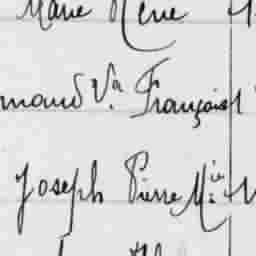 Marie René
mand Vᵉ François
Joseph Pierre Mⁱᵉ